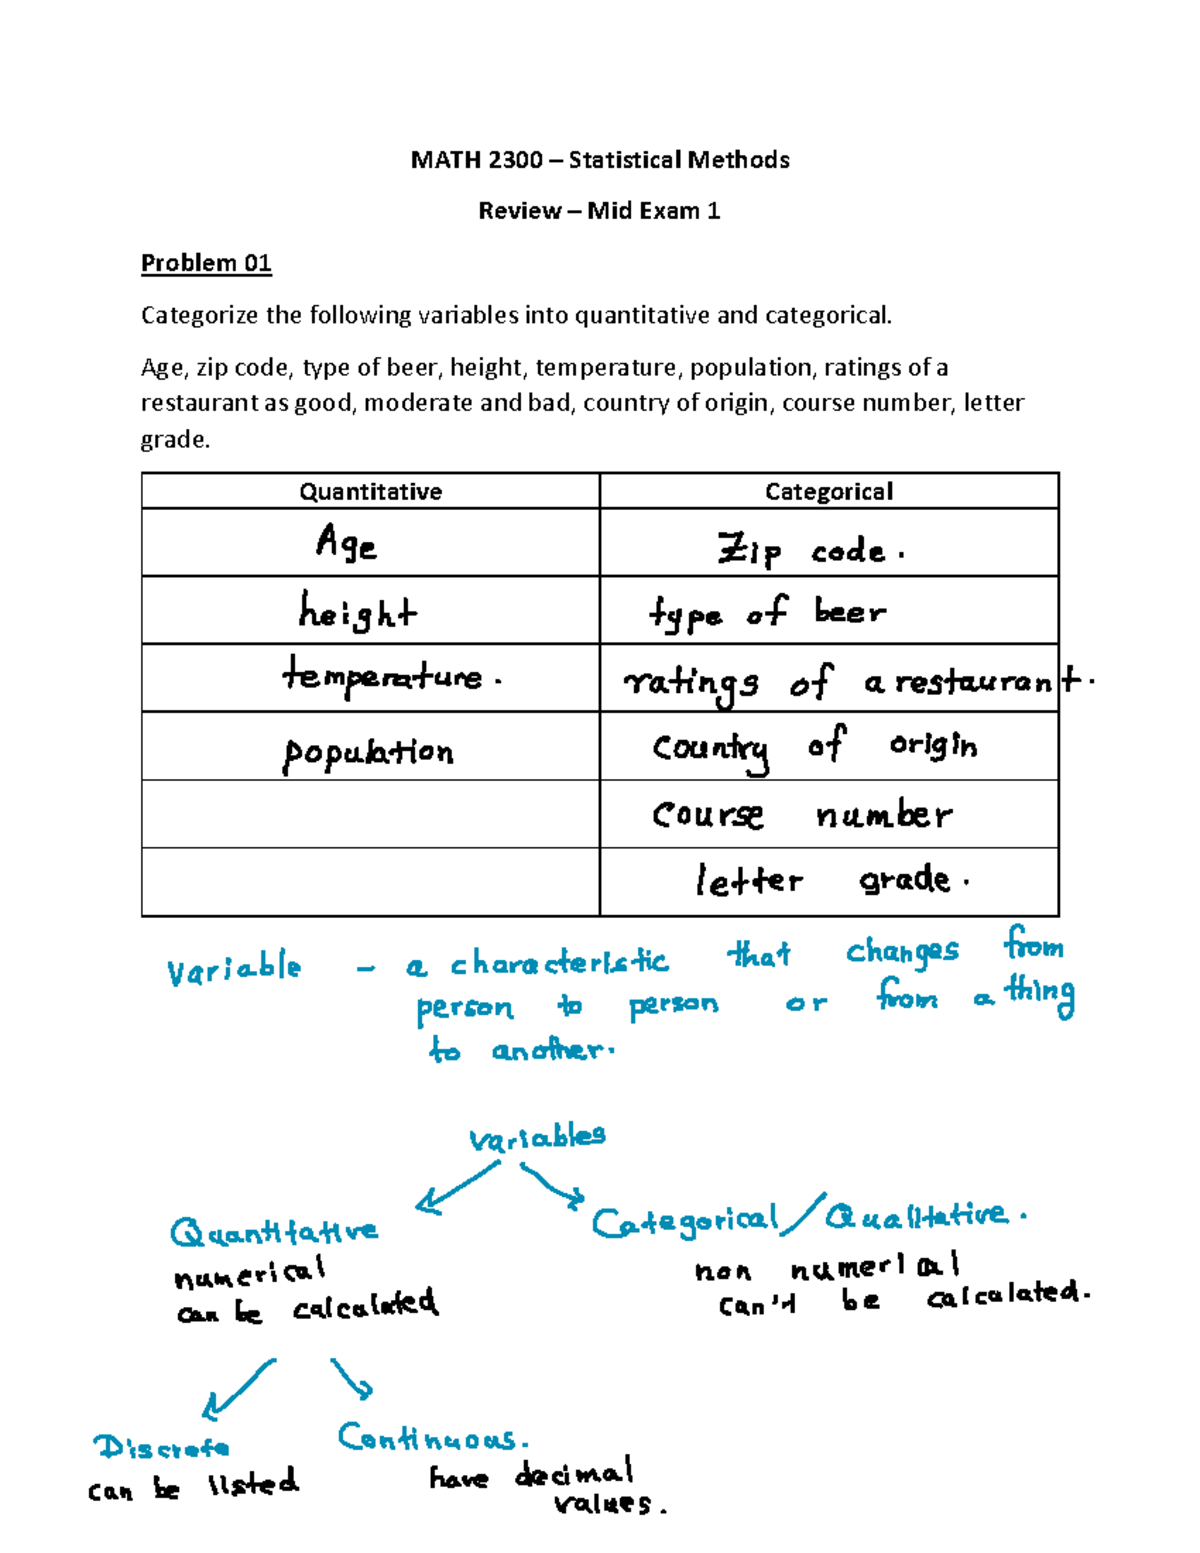 MATH 2300 – Statistical Methods
Review – Mid Exam 1
Problem 01
Categorize the following variables into quantitative and categorical.
Age, zip code, type of beer, height, temperature, population, ratings of a
restaurant as good, moderate and bad, country of origin, course number, letter
grade.
Quantitative Categorical
Age Zip code.
height type of beer
temperature. ratings of a restaurant.
population country of origin
course number
letter grade.
Variable – a characteristic that changes from
person to person or from a thing
to another.
variables
Quantitative Categorical/Qualitative.
numerical non numerial
can be calculated can't be calculated.
Discrete Continuous.
can be listed have decimal
values.